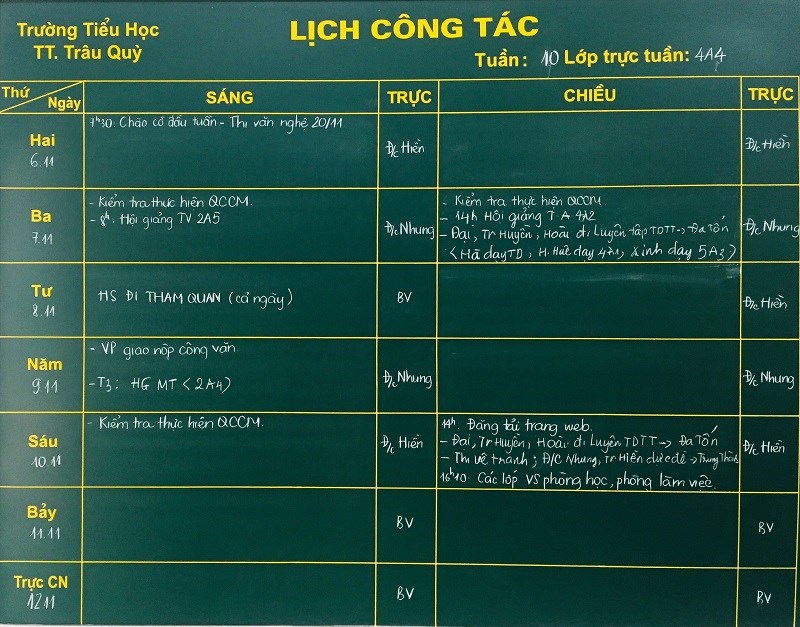 Trường Tiểu Học
TT. Trâu Quỳ
LỊCH CÔNG TÁC
Tuần: 10 Lớp trực tuần: 4A4
Thứ Ngày
SÁNG
TRỰC
CHIỀU
TRỰC
Hai
6.11
7h30: Chào cờ đầu tuần - Thi văn nghệ 20/11
Đ/c Hiền
Đ/c Hiền
Ba
7.11
- Kiểm tra thực hiện QCCM
- 8h. Hội giảng TV 2A5
Đ/c Nhung
- Kiểm tra thực hiện QCCM.
- 14h Hội giảng T.A 4A2
- Đại, Tr Huyền, Hoài đi Luyện tập TDTT -> Đa Tốn
(Hà dạy TD, H. Huê dạy 4A1, Xinh dạy 5A3)
Đ/c Nhung
Tư
8.11
HS ĐI THAM QUAN (cả ngày)
BV
Đ/c Hiền
Năm
9.11
- VP giao nộp công văn
- T3: HG MT (2A4)
Đ/c Nhung
Đ/c Nhung
Sáu
10.11
- Kiểm tra thực hiện QCCM.
Đ/c Hiền
14h. Đăng tải trang web.
- Đại, Tr Huyền, Hoài đi Luyện TDTT -> Đa Tốn
- Thi vẽ tranh; Đ/C Nhung, Tr Hiền -> Trung Thành
16h10. Các lớp VS phòng học, phòng làm việc
Đ/c Hiền
Bảy
11.11
BV
BV
Trực CN
12.11
BV
BV